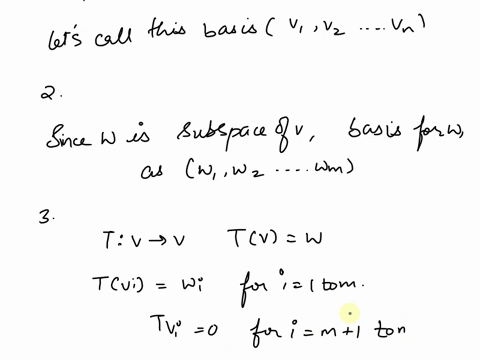 Let's call this basis (v1, v2 .... vn)
2.
Since W is subspace of v, basis for W,
as (w1, w2 .... wm)
3.
T: v → v T(v) = W
T(vi) = wi for i = 1 to m.
Tvi = 0 for i = m+1 to n